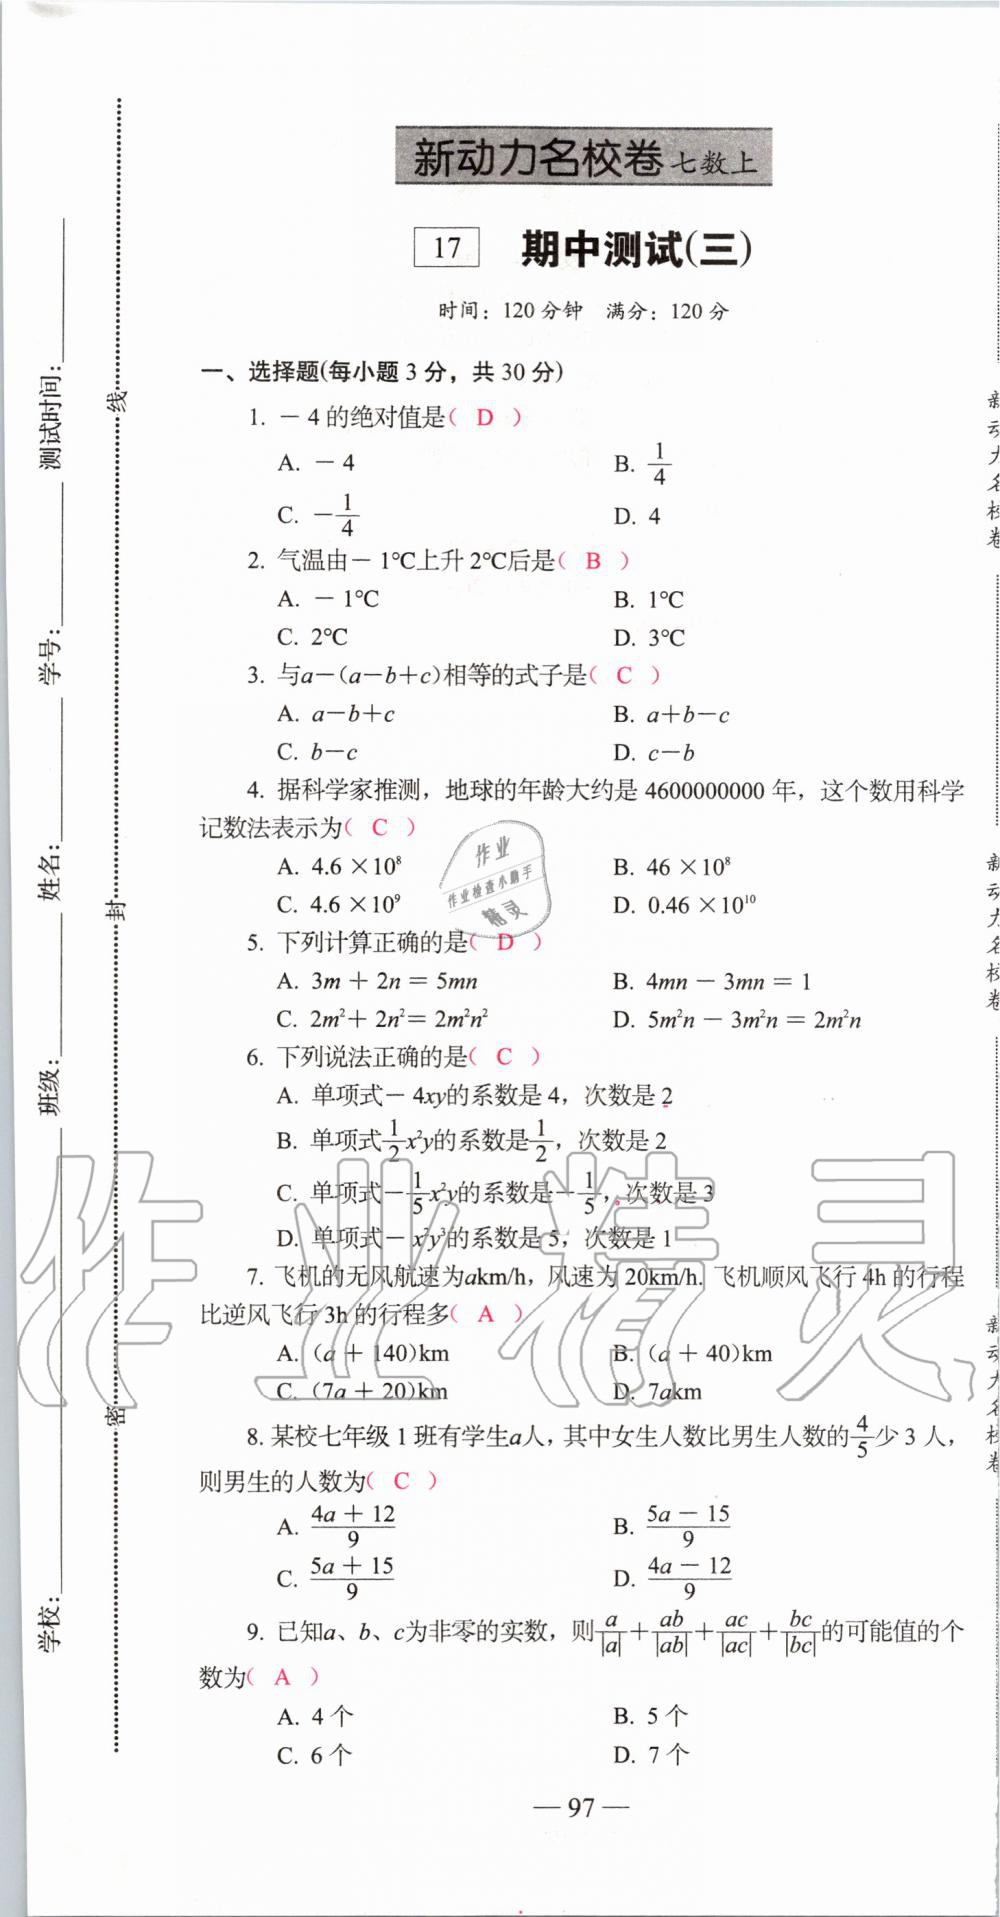 新动力名校卷 七数上
17 期中测试(三)
时间：120分钟 满分：120分
一、选择题(每小题3分，共30分)
1. －4的绝对值是( D )
A. －4 B. 1/4
C. －1/4 D. 4
2. 气温由－1℃上升2℃后是( B )
A. －1℃ B. 1℃
C. 2℃ D. 3℃
3. 与a－(a－b＋c)相等的式子是( C )
A. a－b＋c B. a＋b－c
C. b－c D. c－b
4. 据科学家推测，地球的年龄大约是4600000000年，这个数用科学
记数法表示为( C )
A. 4.6×10⁸ B. 46×10⁸
C. 4.6×10⁹ D. 0.46×10¹⁰
5. 下列计算正确的是( D )
A. 3m＋2n＝5mn B. 4mn－3mn＝1
C. 2m²＋2n²＝2m²n² D. 5m²n－3m²n＝2m²n
6. 下列说法正确的是( C )
A. 单项式－4xy的系数是4，次数是2
B. 单项式1/2x²y的系数是1/2，次数是2
C. 单项式－1/5x²y的系数是－1/5，次数是3
D. 单项式－x²y³的系数是5，次数是1
7. 飞机的无风航速为akm/h，风速为20km/h. 飞机顺风飞行4h的行程
比逆风飞行3h的行程多( A )
A. (a＋140)km B. (a＋40)km
C. (7a＋20)km D. 7akm
8. 某校七年级1班有学生a人，其中女生人数比男生人数的4/5少3人，
则男生的人数为( C )
A. (4a＋12)/9 B. (5a－15)/9
C. (5a＋15)/9 D. (4a－12)/9
9. 已知a、b、c为非零的实数，则a/|a|＋ab/|ab|＋ac/|ac|＋bc/|bc|的可能值的个
数为( A )
A. 4个 B. 5个
C. 6个 D. 7个
— 97 —
学校： 班级： 姓名： 学号： 测试时间：
密 封 线
作业
作业检查小助手
精灵
作业精灵
新动力名校卷
新动力名校卷
新动力名校卷